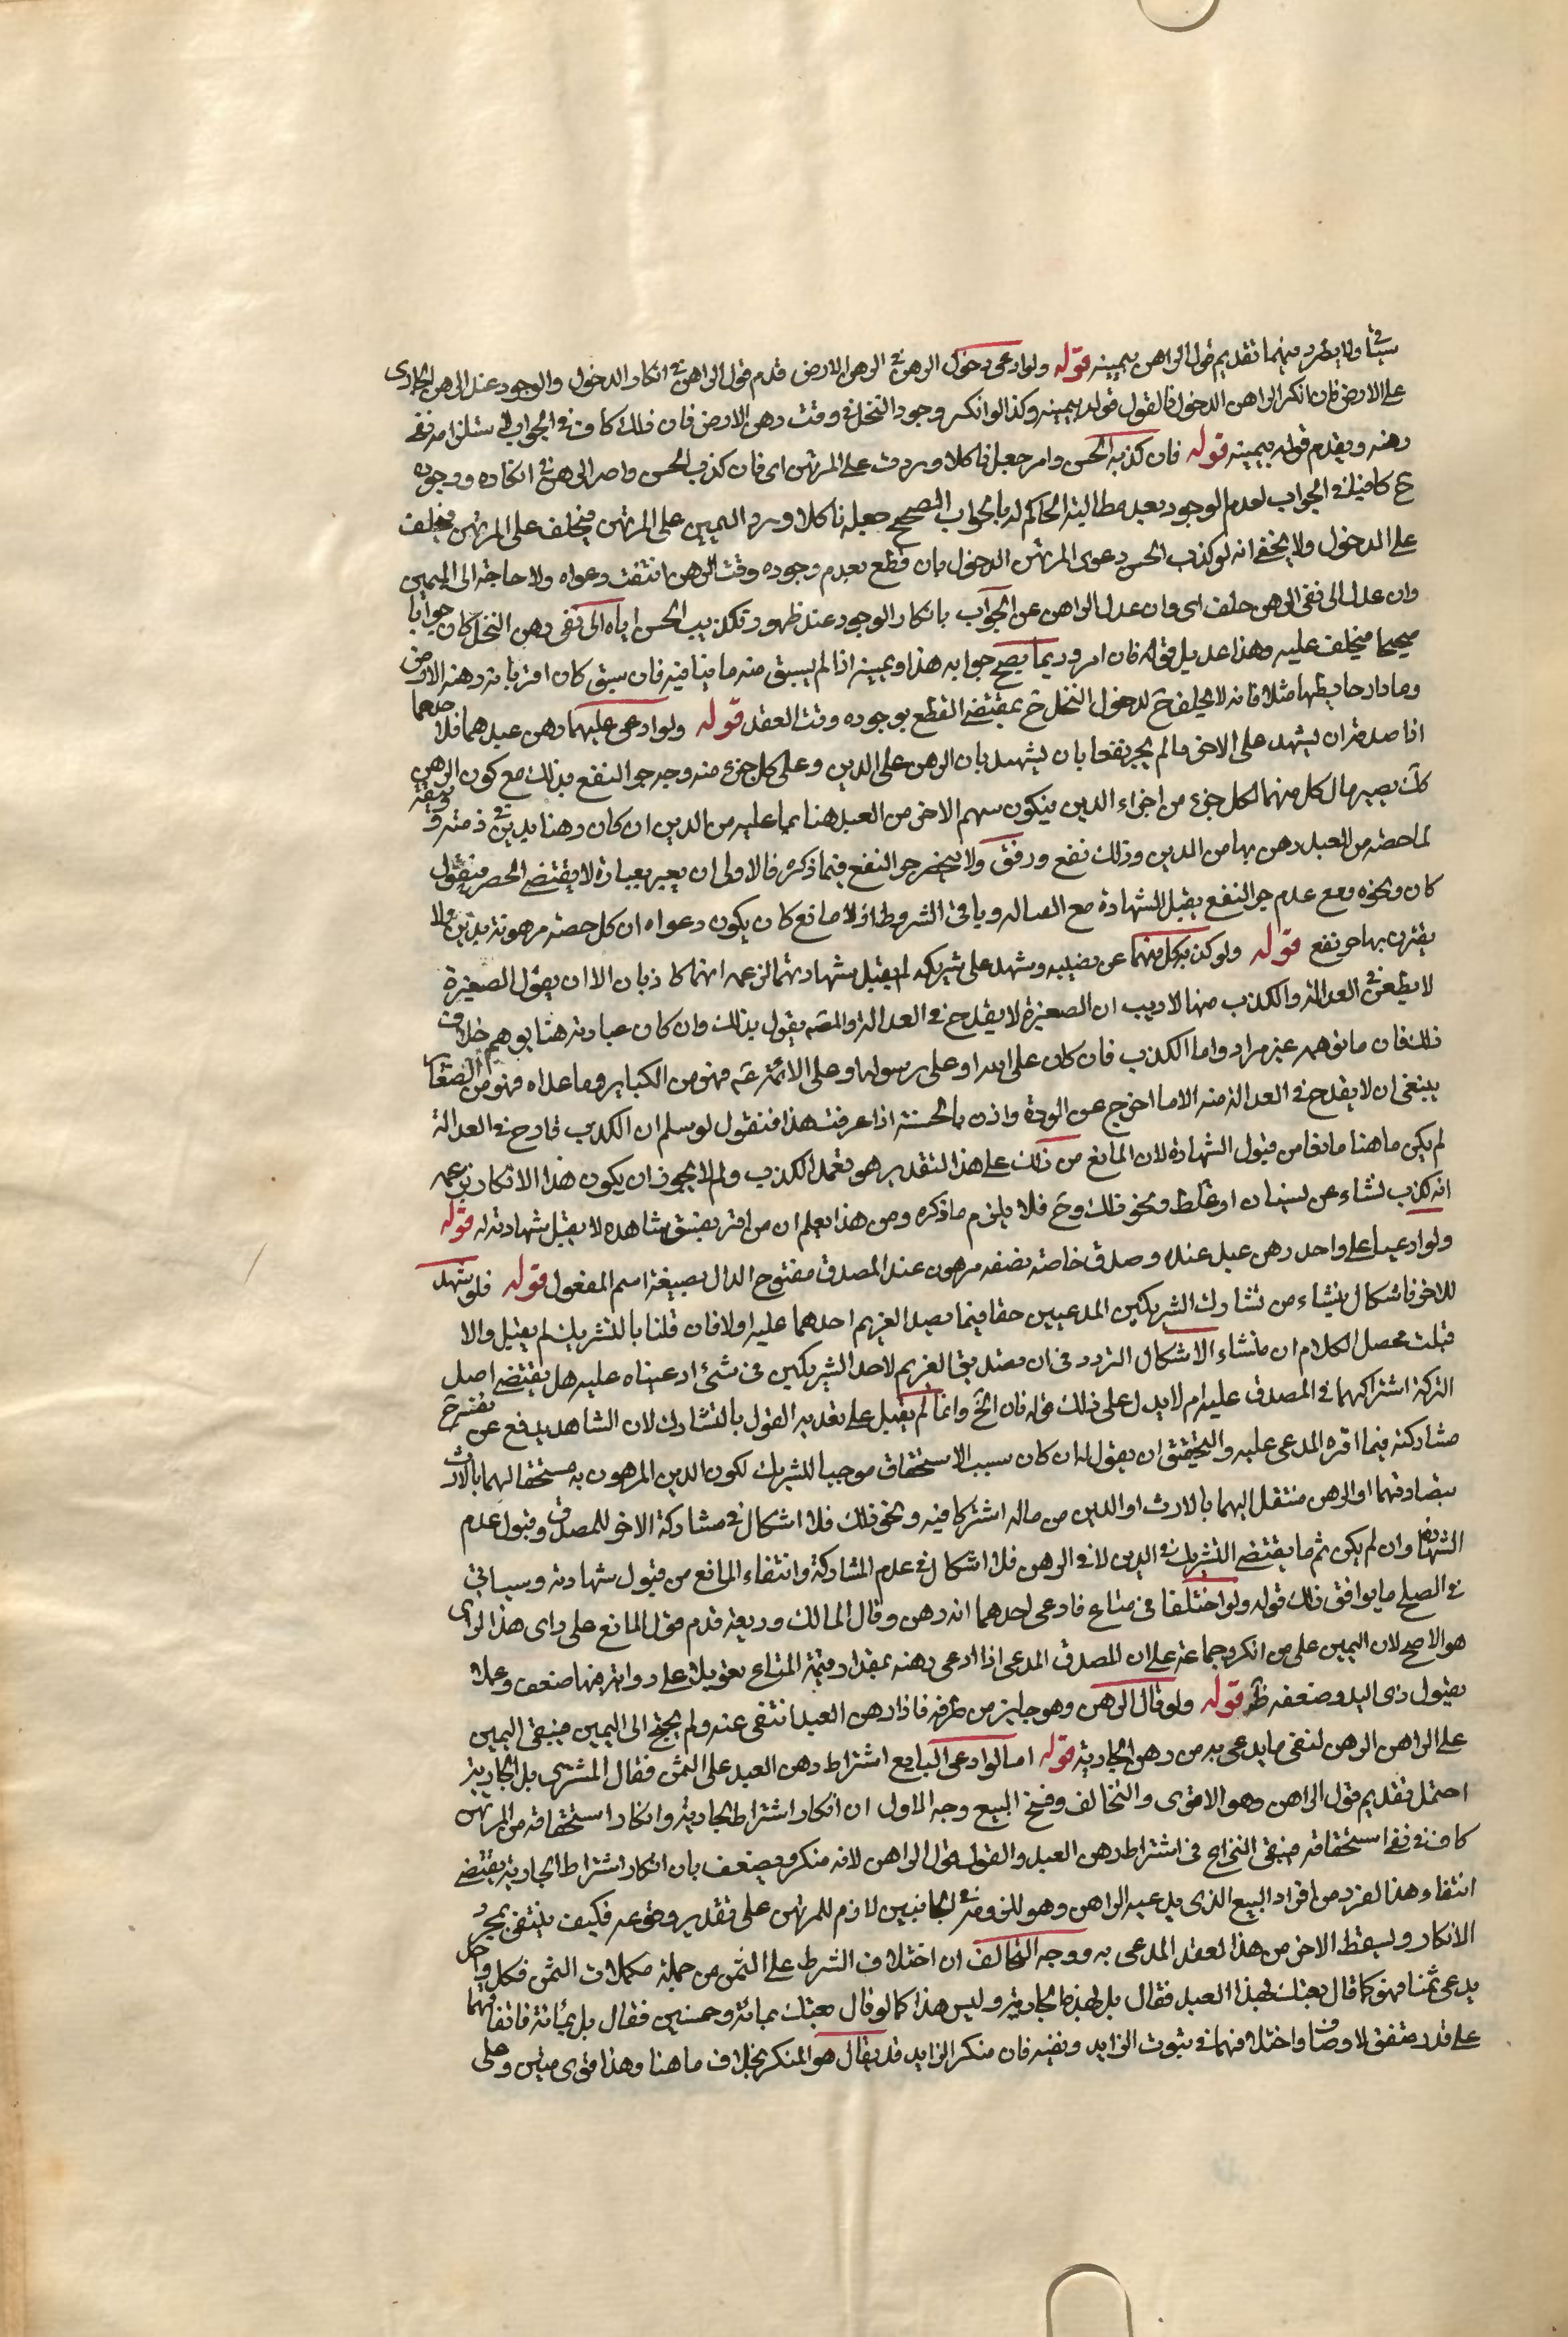 سيأتي ولا يطرد منهما تقديم قول الراهن بيمينه قوله ولو ادعى دخول الرهن في الرهن الارض قدم قول الراهن في انكار الدخول والوجود عند الرهن الجارى
على الارض فان انكر الراهن الدخول فالقول قوله بيمينه وكذا لو انكر وجود النخل في وقت رهن الارض فان ذلك كاف في الجواب لاستلزامه نفي
رهنه ويقدم قوله بيمينه قوله فان كذبه الحس وامر جعل ناكلا وردت على المرتهن اى فان كذب الحس واصر الراهن على انكاره ووجوده
ح كافيا في الجواب لعدم الوجود بعد مطالبة الحاكم له بالجواب الصحيح جعله ناكلا ورد اليمين على المرتهن فيحلف على المرتهن فيحلف
على الدخول ولا يخفى انه لو كذب الحس دعوى المرتهن الدخول بان قطع بعدم وجوده وقت الرهن انتفت دعواه ولا حاجة الى اليمين
وان عدل الى نفى الرهن حلف اى وان عدل الراهن عن الجواب بانكار الوجود عند ظهور تكذيب الحس اياه الى نفى رهن النخل كان جوابا
صحيحا فيحلف عليه وهذا عديل قوله فان امر وربما يصح جوابه هذا ويمينه اذا لم يسبق منه ما ينافيه فان سبق كان اقر بانه رهنه الارض
وما دار حايطها مثلا فانه لا يحلف ح لدخول النخل ح بمقتضى القطع بوجوده وقت العقد قوله ولو ادعى عليهما رهن عبدهما فلاحدهما
اذا صدقه ان يشهد على الاخر ما لم يجر نفعا بان يشهد بان الرهن على الدين وعلى كل جزء منه وجه جر النفع بذلك مع كون الرهن
كك يصير مال كل منهما لكل جزء من اجزاء الدين فيكون سهم الاخر من العبد هنا بما عليه من الدين ان كان رهنا بدين في ذمته وثيقة
لما حصته من العبد رهن بها من الدين وذلك نفع ورفق ولا ينحصر جر النفع فيما ذكره فالاولى ان يعبر بعبارة لا يقتضى الحصر فيقول
كان ونحوه ومع عدم جر النفع يقبل الشهادة مع العدالة وباقى الشروط اذ لا مانع كان يكون دعواه ان كل حصته مرهونة بدين ولا
يقترن بها جر نفع قوله ولو كذب كل منهما عن نصيبه وشهد على شريكه لم يقبل شهادتهما لزعمه انهما كاذبان الا ان يقول الصغيرة
لا يطعن في العدالة والكذب منها لا ريب ان الصغيرة لا يقدح في العدالة والمصنف يقول بذلك وان كان عبارته هنا يوهم خلاف
ذلك فان ما توهمه غير مراد واما الكذب فان كان على الله او على رسوله او على الائمة ع فهو من الكباير وما عداه فهو من الصغاير
ينبغى ان لا يقدح في العدالة منه الا ما اخرج عن المروة واذن بالخسة اذا عرفت هذا فنقول لو سلم ان الكذب قادح في العدالة
لم يكن ما هنا مانعا من قبول الشهادة لان المانع من ذلك على هذا التقدير هو تعمد الكذب ولم لا يجوز ان يكون هذا الانكار بزعمه
انه كذب نشاء عن نسيان او غلط ونحو ذلك وح فلا يلزم ما ذكره ومن هذا يعلم ان من اقر بفسق شاهده لا يقبل شهادته له قوله
ولو ادعيا على واحد رهن عبد عنده وصدق خاصة نصفه مرهون عند المصدق مفتوح الدال بصيغة اسم المفعول قوله فلو شهد
للاخر فاشكال ينشاء من تشارك الشريكين المدعيين حقا فيما يصدق الغريم احدهما عليه اولا فان قلنا بالتشريك لم يقبل والا
قبلت محصل الكلام ان منشاء الاشكال التردد في ان تصديق الغريم لاحد الشريكين في شئ ادعياه عليه هل يقتضى اصل
التركة اشتراكهما في المصدق عليه ام لا يدل على ذلك قوله فان الخ وانما لم يقبل على تقدير القول بالتشارك لان الشاهد يدفع عن نفسه ح
مشاركته فيما اقر به المدعى عليه والتحقيق ان يقول ان كان سبب الاستحقاق موجبا للشريك لكون الدين المرهون به مستحقا لهما بالارث
بتصادقهما او الرهن منتقل اليهما بالارث او الدين من مال اشتركا فيه ونحو ذلك فلا اشكال في مشاركة الاخر للمصدق وقبول عدم
الشهادة وان لم يكن ثم ما يقتضى التشريك في الدين لا في الرهن فلا اشكال في عدم المشاركة وانتفاء المانع من قبول شهادته وسياتى
في الصلح ما يوافق ذلك قوله ولو اختلفا في متاع فادعى احدهما انه رهن وقال المالك وديعة قدم قول المانع على راى هذا الراى
هو الاصح لان اليمين على من انكر وجماعة على ان المصدق المدعى اذا ادعى رهنه بمقدار قيمة المتاع تعويلا على رواية فيها ضعف وعملا
بقبول ذى اليد وضعفه ظ قوله ولو قال الرهن وهو جايز من طرفه فاذا رهن العبد انتفى عنه ولم يحتج الى اليمين فيبقى اليمين
على الراهن الرهن لنفى ما يدعى به من رهن الجارية قوله اما لو ادعى البايع اشتراط رهن العبد على الثمن فقال المشترى بل الجارية
احتمل تقديم قول الراهن وهو الاقوى والتحالف وفسخ البيع وجه الاول ان انكار اشتراط الجارية وانكار استحقاقه من المرتهن
كاف في نفى استحقاقه فيبقى النزاع في اشتراط رهن العبد والقول قول الراهن لانه منكر ويضعف بان انكار اشتراط الجارية يقتضى
انتفاء هذا لفرد من افراد البيع الذى يدعيه الراهن وهو للزومه في الجانبين لازم للمرتهن على تقدير وقوعه فكيف ينتفى بمجرد
الانكار ويسقط الاخر من هذا العقد المدعى به ووجه التحالف ان اختلاف الشرط على الثمن من جملة مكملات الثمن فكل واحد
يدعى ثمنا فهو كما قال بعتك بهذا العبد فقال بل بهذه الجارية وليس هذا كما لو قال بعتك بمائة وخمسين فقال بل بمائة فاتفاقهما
على قدر متفق الاوصاف واختلافهما في ثبوت الزايد ونفيه فان منكر الزايد قد يقال هو المنكر بخلاف ما هنا وهذا قوى متين وعلى